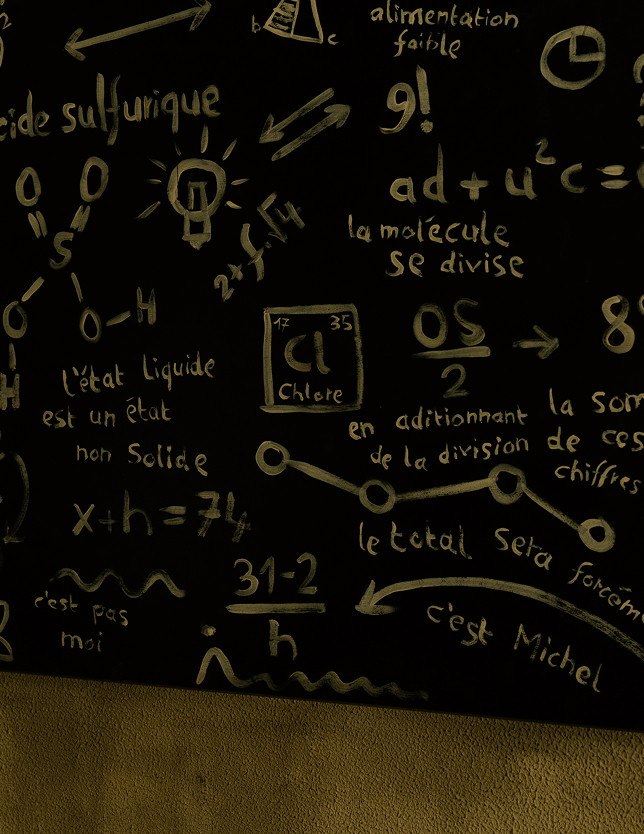 b
c
alimentation
faible
cide sulfurique
9!
ad + u²c =
O O
S
O O - H
H
2x f.√4
la molécule
se divise
17 35
Cl
Chlore
OS
2
8
l'état liquide
est un état
non Solide
en aditionnant
de la division
la som
de ces
chiffres
x+h=74
le total sera forcém
31-2
h
c'est pas
moi
c'est Michel